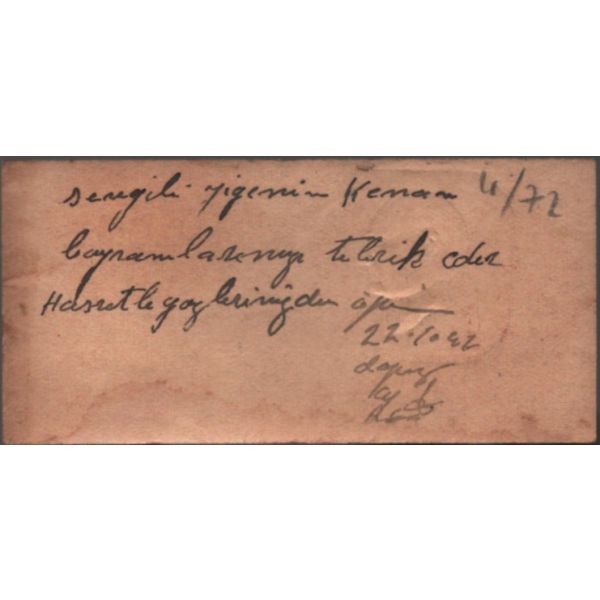 sevgili yigenim Kenan 4/72
bayramlarınızı tebrik eder
Hasretle gozlerinizden öpe
22.10.42